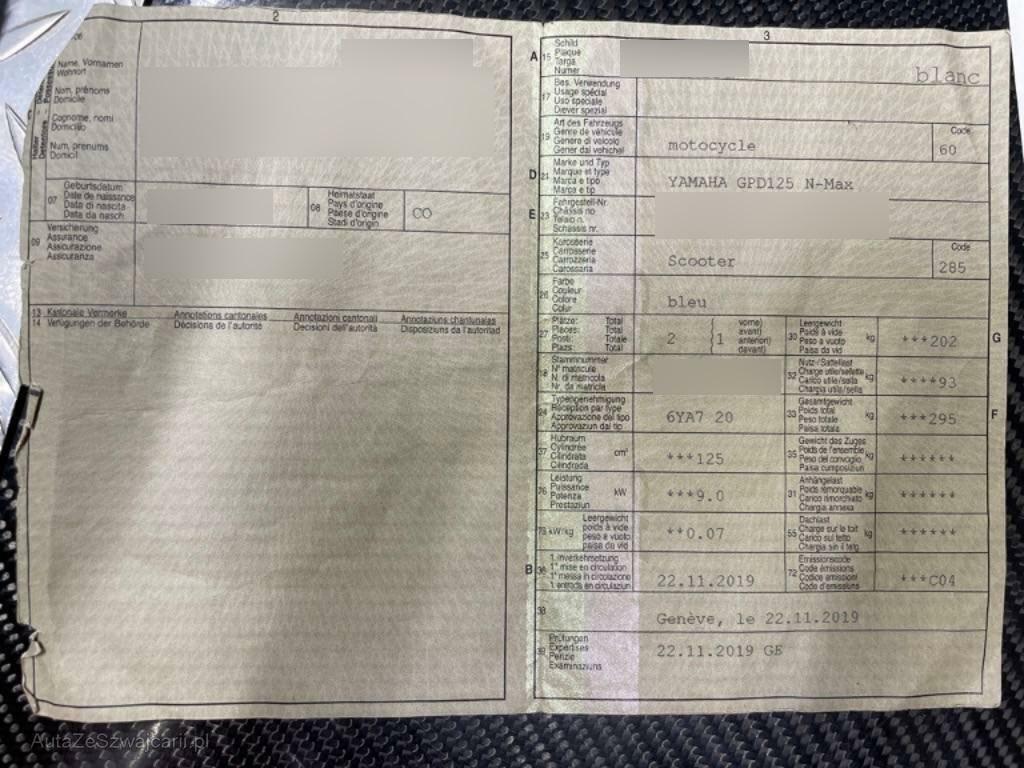 2
Name, Vornamen
Wohnort
Nom, prénoms
Domicile
Cognome, nomi
Domicilio
Num, prenums
Domicil
07
Geburtsdatum
Date de naissance
Data di nascita
Data da nasch.
08
Heimatstaat
Pays d'origine
Paese d'origine
Stadi d'origin
CO
09
Versicherung
Assurance
Assicurazione
Assicuranza
13 Kantonale Vermerke Annotations cantonales Annotazioni cantonali Annotaziuns chantunalas
14 Verfügungen der Behörde Décisions de l'autorité Decisioni dell'autorità Disposiziuns da l'autoritad
3
A 15
Schild
Plaque
Targa
Numer
blanc
17
Bes. Verwendung
Usage spécial
Uso speciale
Diever spezial
19
Art des Fahrzeugs
Genre de véhicule
Genere di veicolo
Gener dal vehichel
motocycle
Code
60
D 21
Marke und Typ
Marque et type
Marca e tipo
Marca e tip
YAMAHA GPD125 N-Max
E 23
Fahrgestell-Nr.
Châssis no
Telaio n.
Schassis nr.
25
Karosserie
Carrosserie
Carrozzeria
Carossaria
Scooter
Code
285
26
Farbe
Couleur
Colore
Colur
bleu
27
Plätze: Total
Places: Total
Posti: Totale
Plazs: Total
2 {1
vorne)
avant)
anteriori)
davant)
30
Leergewicht
Poids à vide
Peso a vuoto
Paisa da vid
kg
***202
G
18
Stammnummer
N° matricule
N. di matricola
Nr. da matricla
32
Nutz-/Sattellast
Charge utile/sellette
Carico utile/sella
Chargia utila/sella
kg
****93
24
Typengenehmigung
Réception par type
Approvazione del tipo
Approvaziun dal tip
6YA7 20
33
Gesamtgewicht
Poids total
Peso totale
Paisa totala
kg
***295
F
37
Hubraum
Cylindrée
Cilindrata
Cilindrada
cm³
***125
35
Gewicht des Zuges
Poids de l'ensemble
Peso del convoglio
Paisa cumposiziun
kg
******
76
Leistung
Puissance
Potenza
Prestaziun
kW
***9.0
31
Anhängelast
Poids remorquable
Carico rimorchiato
Chargia annexa
kg
******
78 kW/kg
Leergewicht
poids à vide
peso a vuoto
paisa da vid
**0.07
55
Dachlast
Charge sur le toit
Carico sul tetto
Chargia sin il tetg
kg
******
B 36
1. Inverkehrsetzung
1re mise en circulation
1a messa in circolazione
1. entrada en circulaziun
22.11.2019
72
Emissionscode
Code émissions
Codice emissioni
Code d'emissiuns
***C04
38
Genève, le 22.11.2019
39
Prüfungen
Expertises
Perizie
Examinaziuns
22.11.2019 GE
AutaZeSzwajcarii.pl